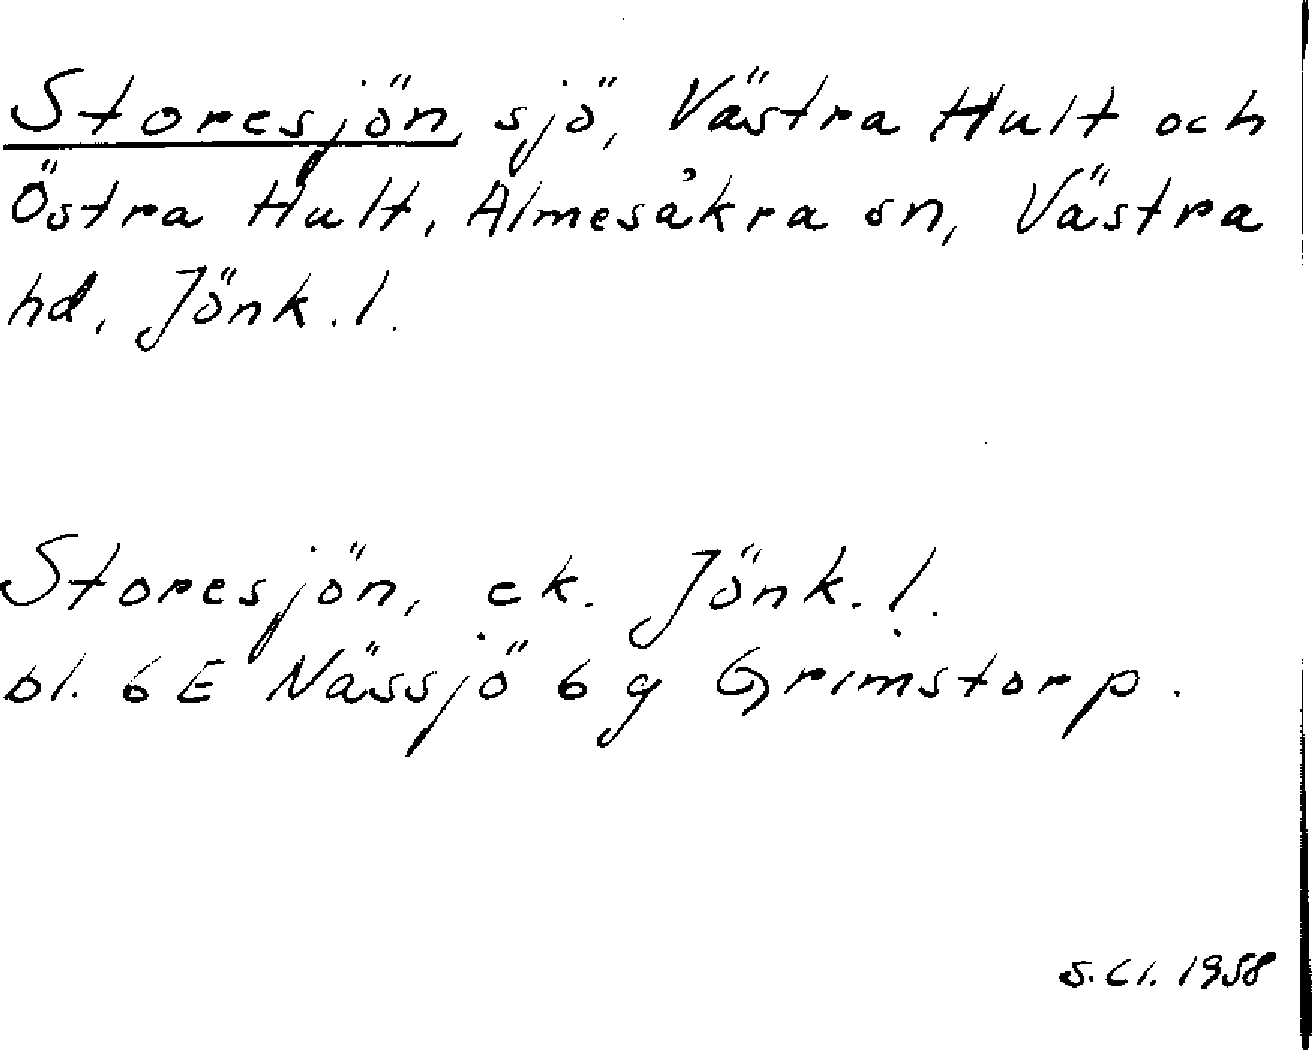 Storesjön, sjö, Västra Hult och
Östra Hult, Almesåkra sn, Västra
hd, Jönk. l.
Storesjön, ek. Jönk. l.
bl. 6 E Nässjö 6 g Grimstorp.
S. Cl. 1958